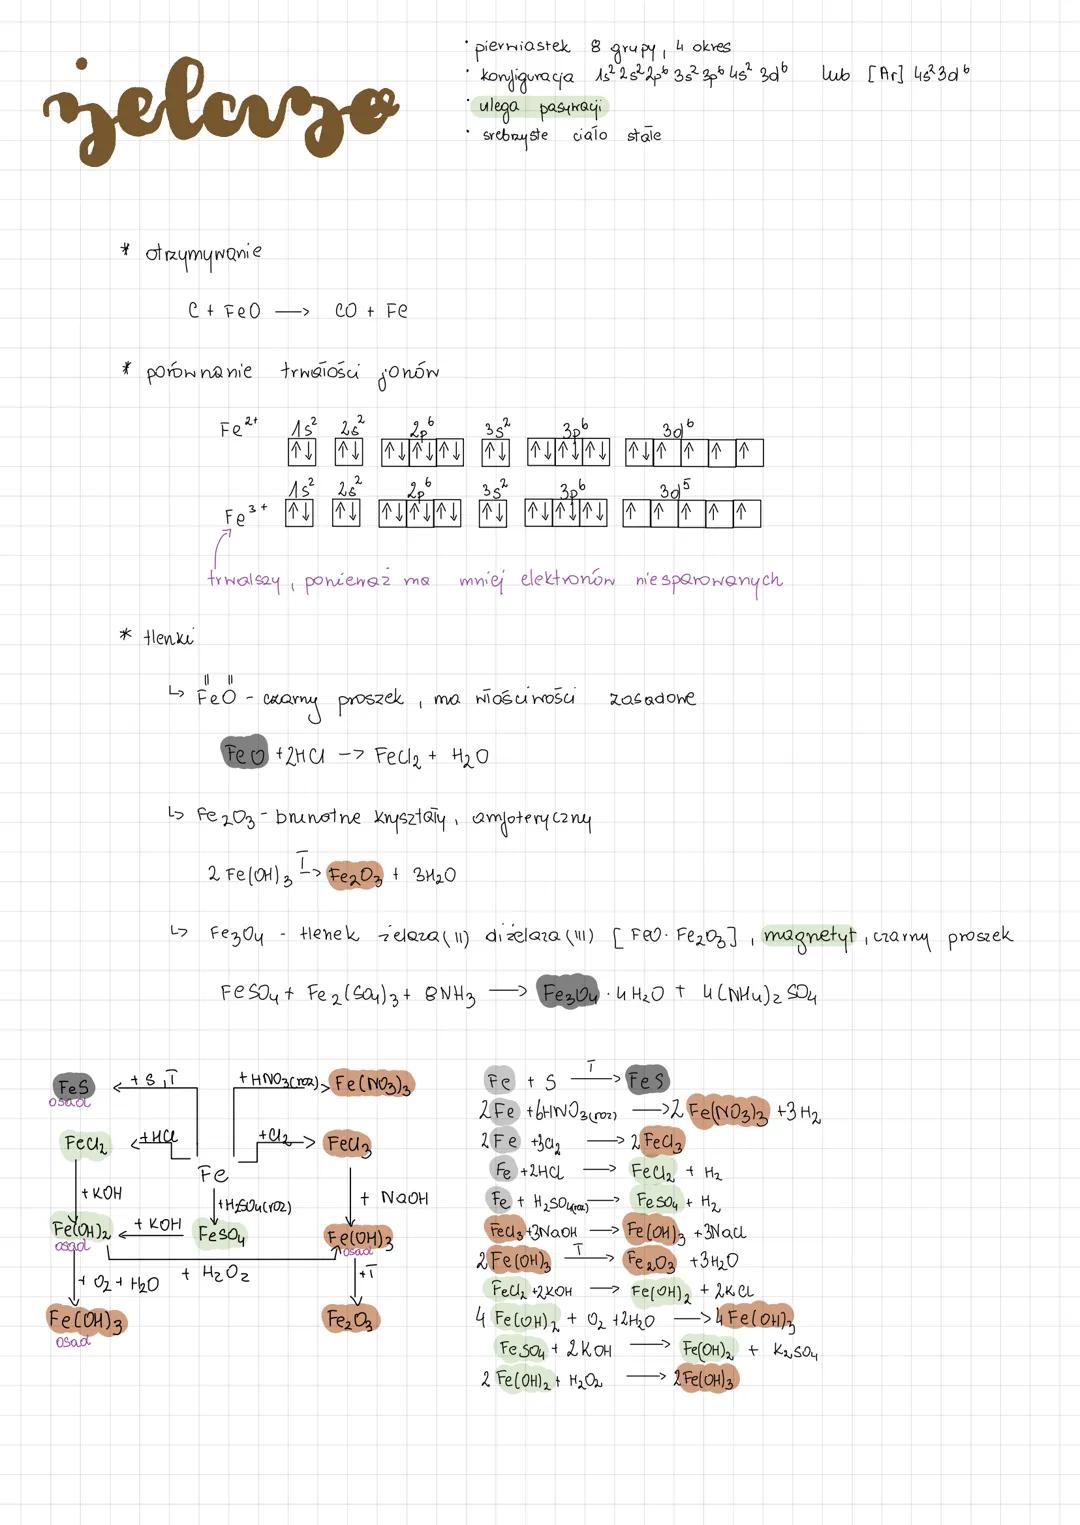 żelazo
· pierwiastek 8 grupy, 4 okres
· konfiguracja 1s² 2s² 2p⁶ 3s² 3p⁶ 4s² 3d⁶ lub [Ar] 4s² 3d⁶
· ulega pasywacji
· srebrzyste ciało stałe
* otrzymywanie
C + FeO → CO + Fe
* porównanie trwałości jonów
Fe²⁺ 1s² 2s² 2p⁶ 3s² 3p⁶ 3d⁶
↑↓ ↑↓ ↑↓ ↑↓ ↑↓ ↑↓ ↑↓ ↑↓ ↑↓ ↑↓ ↑ ↑ ↑ ↑
1s² 2s² 2p⁶ 3s² 3p⁶ 3d⁵
Fe³⁺ ↑↓ ↑↓ ↑↓ ↑↓ ↑↓ ↑↓ ↑↓ ↑↓ ↑↓ ↑ ↑ ↑ ↑ ↑
trwalszy, ponieważ ma mniej elektronów niesparowanych
* tlenki
II II
↳ FeO - czarny proszek, ma właściwości zasadowe
FeO + 2HCl → FeCl₂ + H₂O
↳ Fe₂O₃ - brunatne kryształy, amfoteryczny
2 Fe(OH)₃ T→ Fe₂O₃ + 3H₂O
↳ Fe₃O₄ - tlenek żelaza(II) diżelaza(III) [FeO·Fe₂O₃], magnetyt, czarny proszek
FeSO₄ + Fe₂(SO₄)₃ + 8NH₃ → Fe₃O₄ · 4H₂O + 4(NH₄)₂SO₄
FeS + S, T + HNO₃(roz) Fe(NO₃)₃
osad
FeCl₂ + HCl + Cl₂ FeCl₃
Fe
+ KOH + H₂SO₄(roz) + NaOH
Fe(OH)₂ + KOH FeSO₄ Fe(OH)₃
osad osad
+ O₂ + H₂O + H₂O₂ + T
Fe(OH)₃ Fe₂O₃
osad
Fe + S T→ FeS
2Fe + 6HNO₃(roz) → 2 Fe(NO₃)₃ + 3H₂
2Fe + 3Cl₂ → 2 FeCl₃
Fe + 2HCl → FeCl₂ + H₂
Fe + H₂SO₄(roz) → FeSO₄ + H₂
FeCl₃ + 3NaOH → Fe(OH)₃ + 3NaCl
2 Fe(OH)₃ T→ Fe₂O₃ + 3H₂O
FeCl₂ + 2KOH → Fe(OH)₂ + 2KCl
4 Fe(OH)₂ + O₂ + 2H₂O → 4 Fe(OH)₃
FeSO₄ + 2KOH → Fe(OH)₂ + K₂SO₄
2 Fe(OH)₂ + H₂O₂ → 2 Fe(OH)₃